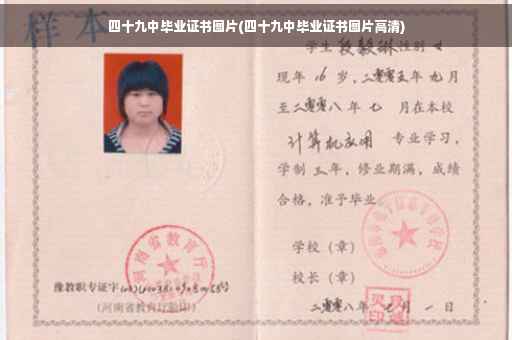 四十九中毕业证书图片(四十九中毕业证书图片高清)
样本
学生 段毅琳 性别 女
现年 16 岁，二零零五年 九月
至二零零八年 七 月在本校
计算机应用 专业学习，
学制 三 年，修业期满，成绩
合格，准予毕业
学校（章）
校长（章）
二零零八年 月 一 日
河南省教育厅
豫教职专证字
(河南省教育厅验印)